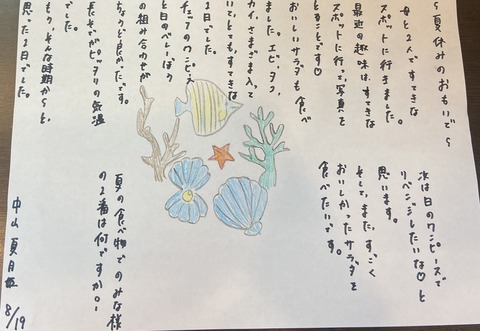 〜夏休みのおもいで〜
母と2人ですてきな
スポットに行きました。
最近の趣味は、すてきな
スポットに行って、写真を
とることです♡
おいしいサラダも食べ
ました。エビ、タコ、
カイ、さまざま入って
いて、とてもすてきな
1日でした。
チェックのワンピ
と白のベレーぼう
の組み合わせが
ちょうど良かったです。
長そでがピッタリの気温
でした。
もう、そんな時期か〜と
思った1日でした。
次は白のワンピースで
リベンジしたいな♡と
思います。
そして、また、すごく
おいしかったサラダを
食べたいです。
夏の食べ物でのみな様
の1番は何ですか。
中山夏月姫
8/19